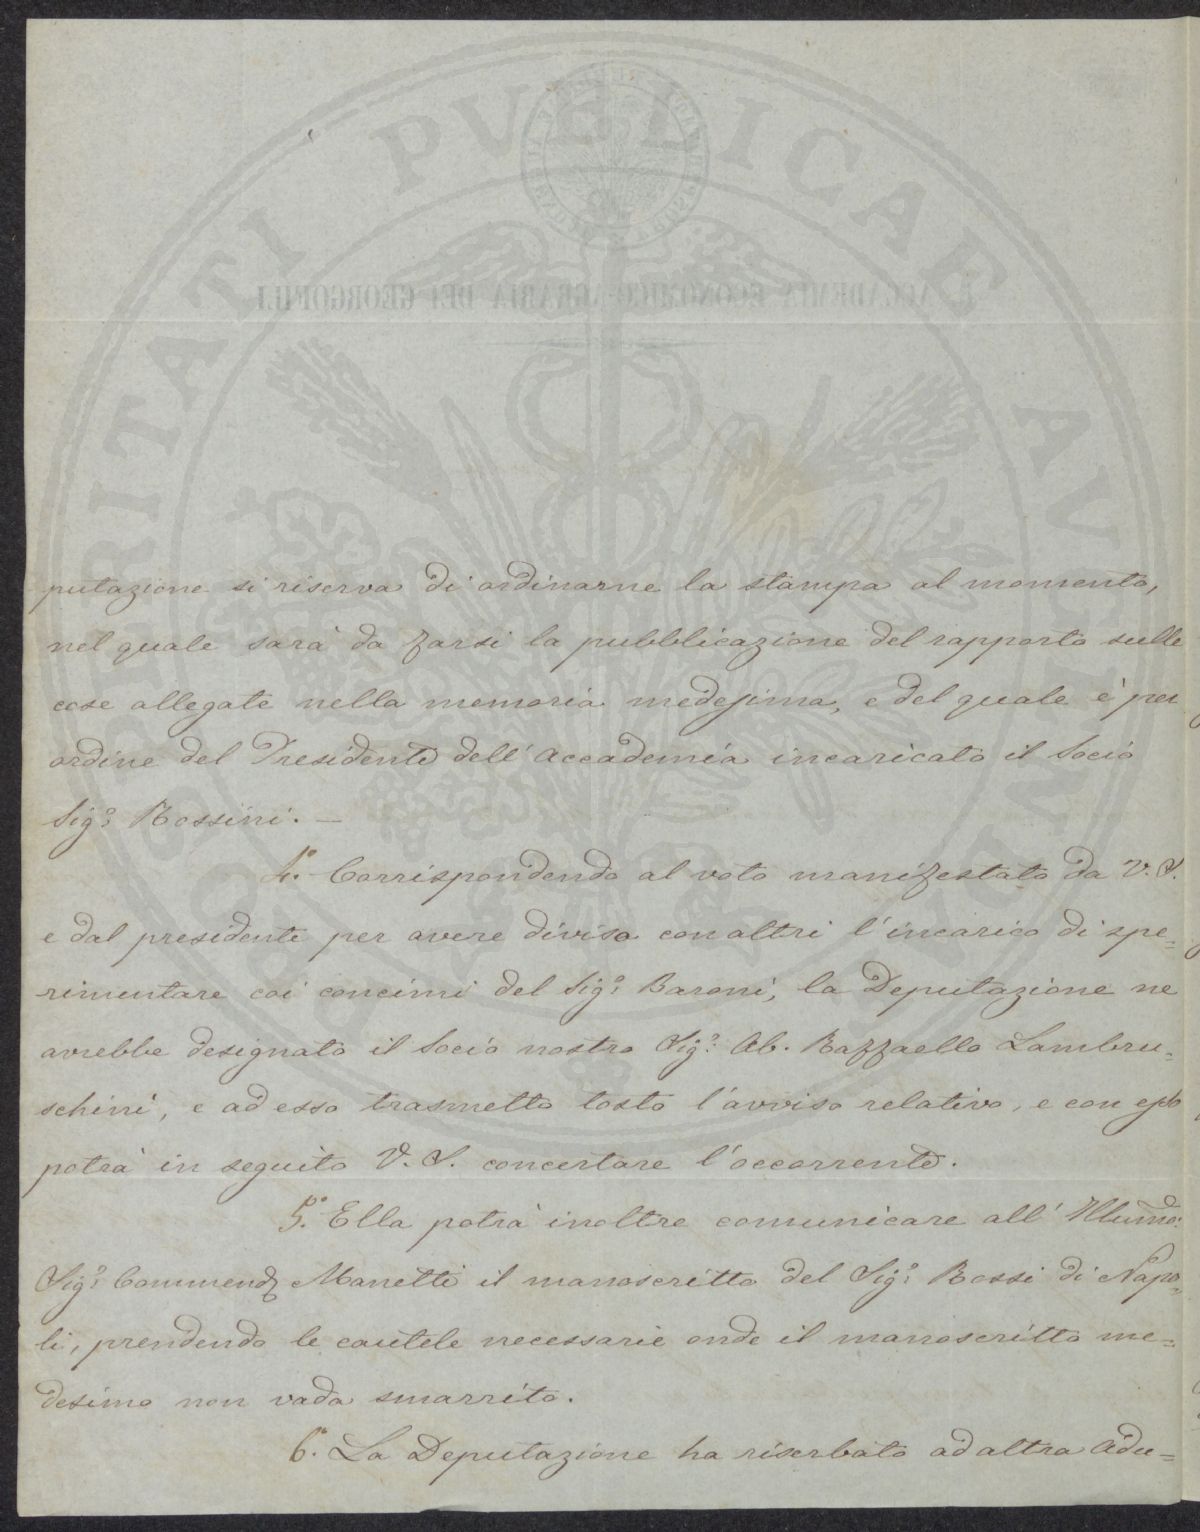 PROSPERITATI PVBLICAE AVGENDAE
R. ACCADEMIA ECONOMICO-AGRARIA DEI GEORGOFILI
putazione si riserva di ordinarne la stampa al momento,
nel quale sarà da farsi la pubblicazione del rapporto sulle
cose allegate nella memoria medesima, e del quale è per
ordine del Presidente dell'Accademia incaricato il Socio
Sigr. Rossini. —
4o. Corrispondendo al voto manifestato da V. S.
e dal presidente per avere diviso con altri l'incarico di spe=
rimentare coi concimi del Sigr. Baroni, la Deputazione ne
avrebbe designato il Socio nostro Sigr. Ab. Raffaello Lambru=
schini, e ad esso trasmetto tosto l'avviso relativo, e con esso
potrà in seguito V. S. concertare l'occorrente.
5o. Ella potrà inoltre comunicare all'Illumo:
Sigr. Commend. Manetti il manoscritto del Sigr. Rossi di Napo=
li, prendendo le cautele necessarie onde il manoscritto me=
desimo non vada smarrito.
6o. La Deputazione ha riserbato ad altra Adu=